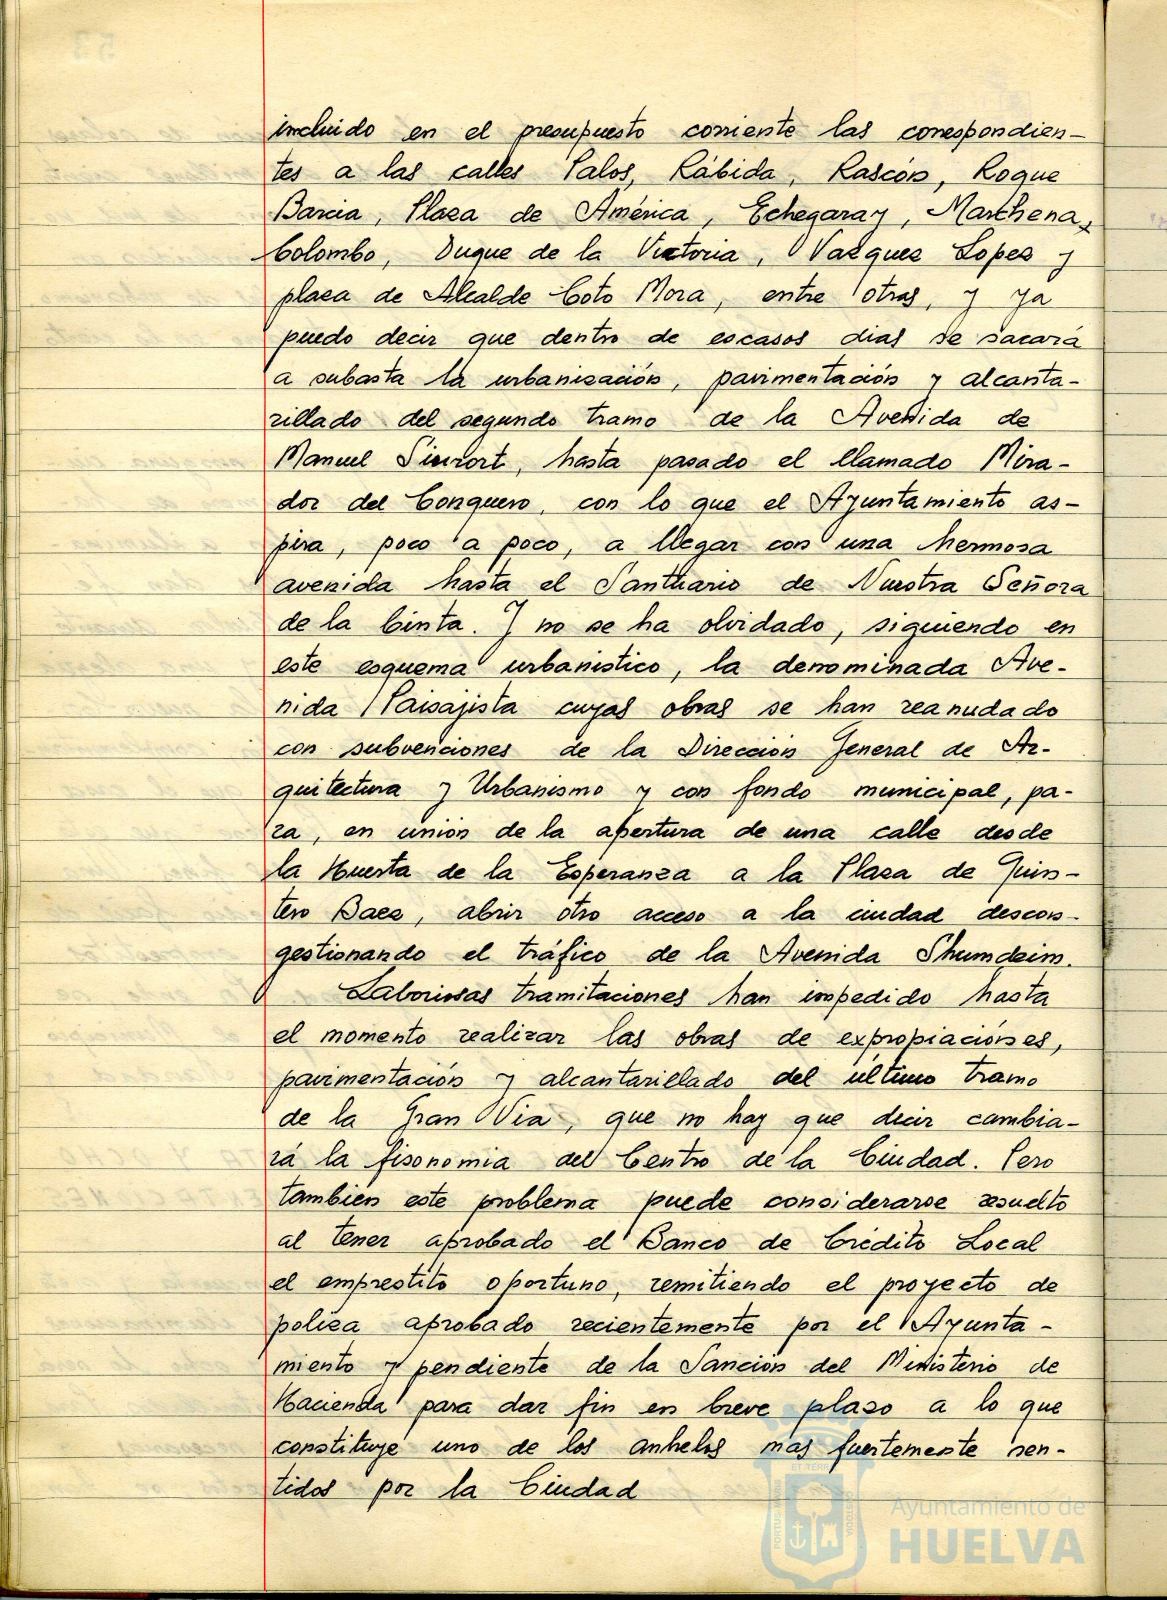 incluido en el presupuesto corriente las correspondien-
tes a las calles Palos, Rábida, Rascón, Roque
Barcia, Plaza de América, Echegaray, Marchena,
Colombo, Duque de la Victoria, Vazquez Lopez y
plaza de Alcalde Coto Mora, entre otras, y ya
puedo decir que dentro de escasos dias se sacará
a subasta la urbanización, pavimentación y alcanta-
rillado del segundo tramo de la Avenida de
Manuel Siurort, hasta pasado el llamado Mira-
dor del Conquero, con lo que el Ayuntamiento as-
pira, poco a poco, a llegar con una hermosa
avenida hasta el Santuario de Nuestra Señora
de la Cinta. Y no se ha olvidado, siguiendo en
este esquema urbanistico, la denominada Ave-
nida Paisajista cuyas obras se han reanudado
con subvenciones de la Dirección General de Ar-
quitectura y Urbanismo y con fondo municipal, pa-
ra, en unión de la apertura de una calle desde
la Huerta de la Esperanza a la Plaza de Quin-
tero Baez, abrir otro acceso a la ciudad descon-
gestionando el tráfico de la Avenida Shumdeim.
Laboriosas tramitaciones han impedido hasta
el momento realizar las obras de expropiaciónes,
pavimentación y alcantarillado del último tramo
de la Gran Via, que no hay que decir cambia-
rá la fisonomia del Centro de la Ciudad. Pero
tambien este problema puede considerarse resuelto
al tener aprobado el Banco de Crédito Local
el emprestito oportuno, remitiendo el proyecto de
poliza aprobado recientemente por el Ayunta-
miento y pendiente de la Sanción del Ministerio de
Hacienda para dar fin en breve plazo a lo que
constituye uno de los anhelos mas fuertemente sen-
tidos por la Ciudad
Ayuntamiento de
HUELVA